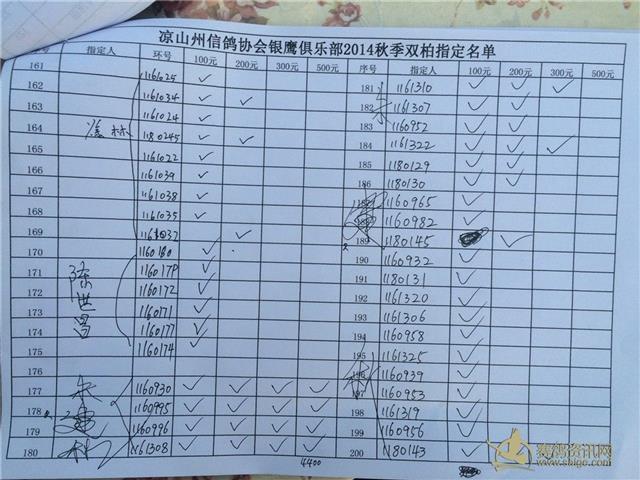 凉山州信鸽协会银鹰俱乐部2014秋季双柏指定名单
指定人 环号 100元 200元 300元 500元 序号 指定人 100元 200元 300元 500元
161 1161025 ✓ 181 1161310 ✓ ✓ ✓
162 1161034 ✓ ✓ 182 1161307 ✓ ✓
163 1161024 ✓ 183 1160952 ✓ ✓
164 1180245 ✓ ✓ 184 1161322 ✓ ✓ ✓
165 1161022 ✓ 185 1180129 ✓ ✓
166 1161039 ✓ 186 1180130 ✓ ✓
167 1161038 ✓ 187 1160965 ✓
168 1161035 ✓ 188 1160982 ✓
169 189 1180145 ✓
170 1160180 ✓ 190 1160932 ✓
171 陈世昌 116017P ✓ 191 1180131 ✓
172 1160172 ✓ 192 1161320 ✓
173 1160171 ✓ 193 1161306 ✓
174 1160177 ✓ 194 1160958 ✓
175 1160174 ✓ 195 1161325 ✓
196 1160939 ✓
177 1160930 ✓ ✓ ✓ ✓ 197 1160953 ✓
178 1160995 ✓ ✓ ✓ ✓ 198 1161319 ✓
179 1160996 ✓ ✓ ✓ ✓ 199 1160956 ✓
180 1161308 ✓ ✓ ✓ ✓ 200 1180143 ✓
4400
www.shigo.com